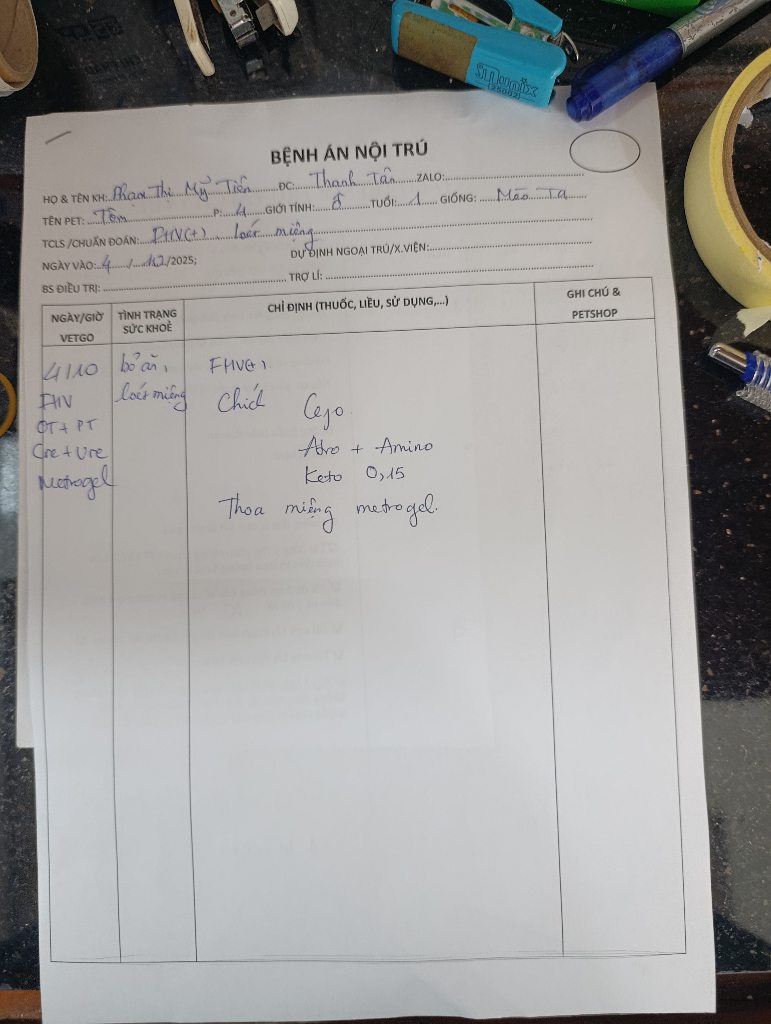 Stmix
(25002)
BỆNH ÁN NỘI TRÚ
HỌ & TÊN KH: Phan Thị Mỹ Tiên ĐC: Thanh Tân ZALO:
TÊN PET: Tôm P: 4 GIỚI TÍNH: ♂ TUỔI: 1 GIỐNG: Mèo Ta
TCLS /CHUẨN ĐOÁN: FHV(+) loét miệng
NGÀY VÀO: 4 / 10 /2025; DỰ ĐỊNH NGOẠI TRÚ/X.VIỆN:
BS ĐIỀU TRỊ: TRỢ LÍ:
NGÀY/GIỜ VETGO
TÌNH TRẠNG SỨC KHOẺ
CHỈ ĐỊNH (THUỐC, LIỀU, SỬ DỤNG,...)
GHI CHÚ & PETSHOP
4/10 bỏ ăn, FHV(+)
FHV loét miệng Chích Cejo
OT + PT Atro + Amino
Cre + Ure Keto 0,15
Metrogel Thoa miệng metrogel.